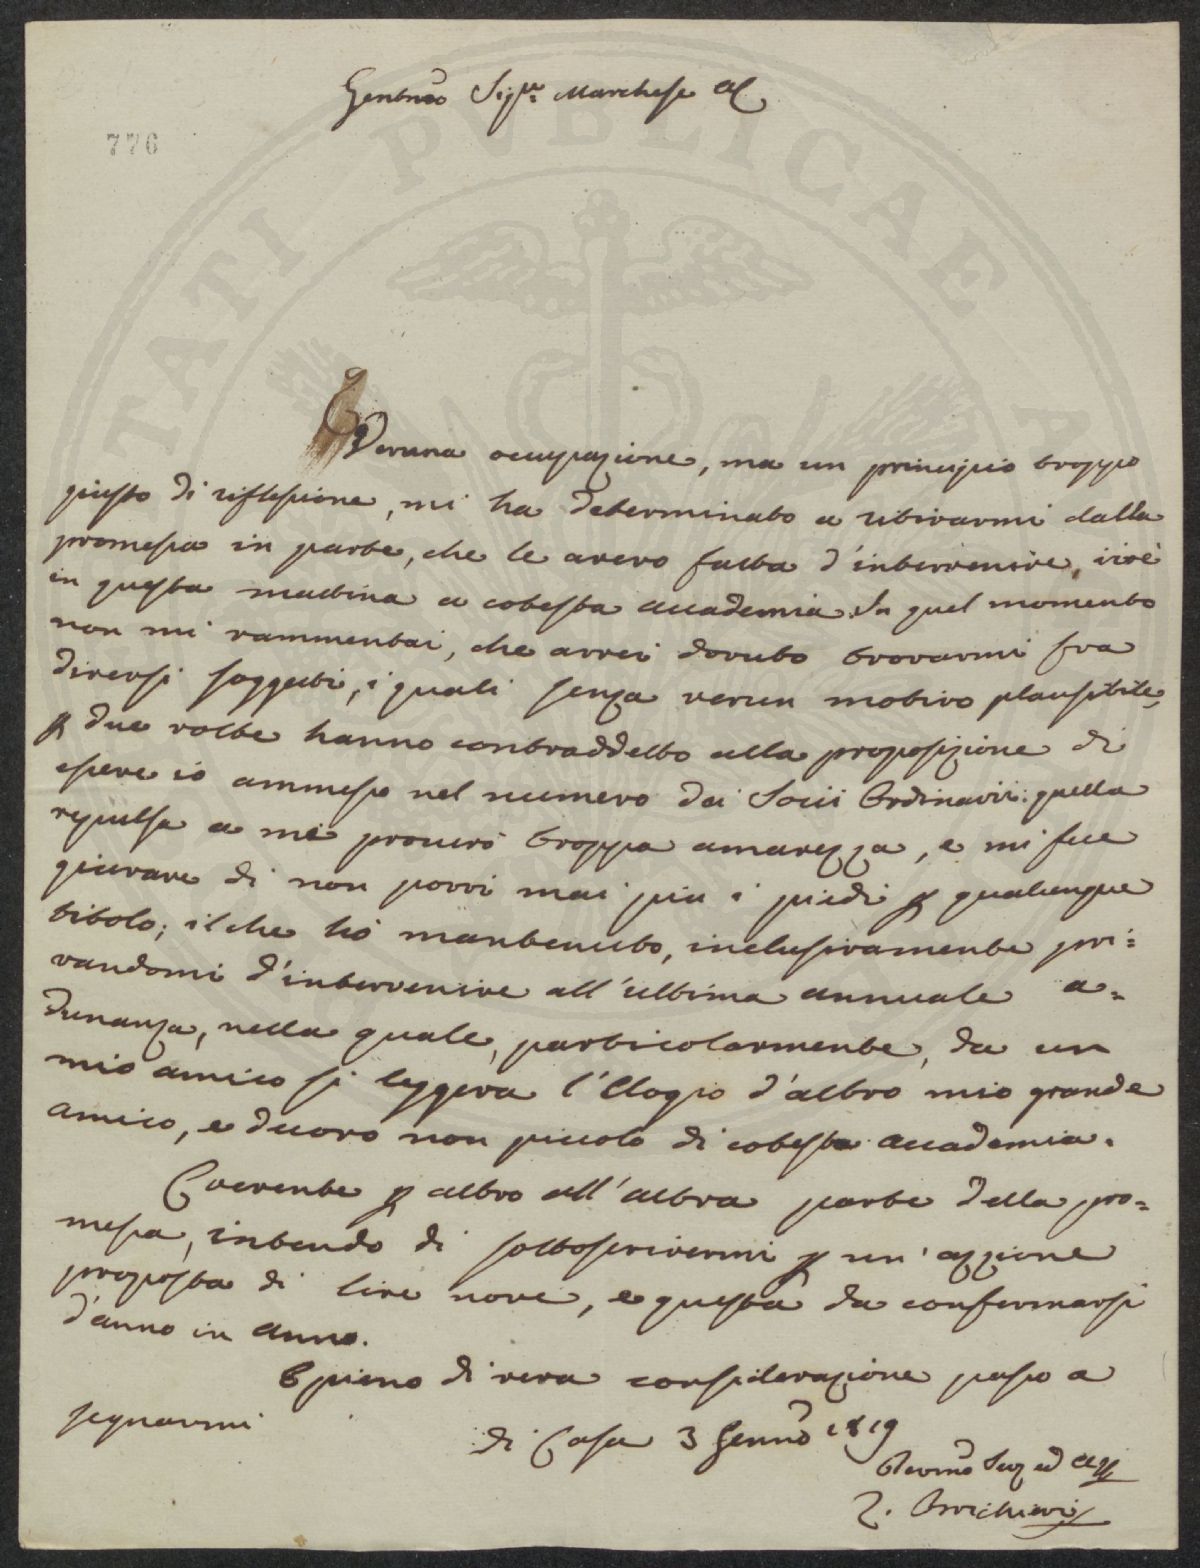 Gentmo Sigre Marchese
776
Veruna occupazione, ma un principio troppo
giusto di riflessione, mi ha determinato a ritirarmi dalla
promessa in parte, che le avevo fatta d'intervenire, cioè
in questa mattina a cotesta accademia. In quel momento
non mi rammentai, che avrei dovuto trovarmi fra
diversi soggetti, i quali senza verun motivo plausibile,
p due volte hanno contraddetto alla proposizione di
essere io ammesso nel numero dei Socii Ordinarii: quella
repulsa a me procurò troppa amarezza, e mi fece
giurare di non porvi mai più i piedi p qualunque
titolo; il che hò mantenuto, inclusivamente pri=
vandomi d'intervenire all'ultima annuale a=
dunanza, nella quale, particolarmente, da un
mio amico si leggeva l'Elogio d'altro mio grande
amico, e decoro non piccolo di cotesta accademia.
Coerente p altro all'altra parte della pro=
messa, intendo di sottoscrivermi p un'azzione
proposta di lire nove, e questa da confermarsi
d'anno in anno.
E pieno di vera considerazione passo a
segnarmi
di Casa 3 Genno 1819
Devmo Ser ed